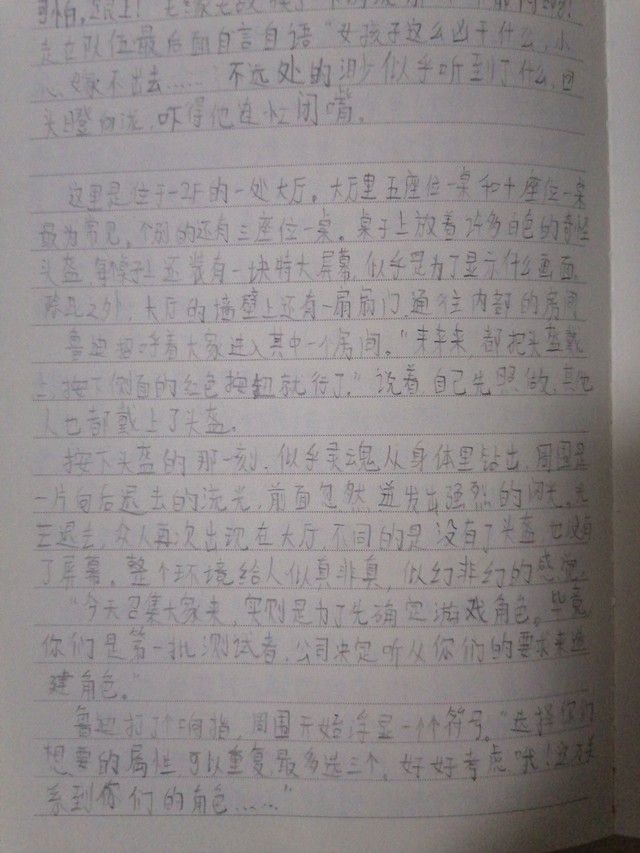 走在队伍最后面自言自语“女孩子这么凶干什么，小
心嫁不出去……”不远处的渺似乎听到了什么，回
头瞪向沅，吓得他连忙闭嘴。
这里是位于-2F的一处大厅。大厅里五座位一桌和十座位一桌
最为常见，个别的还有三座位一桌。桌子上放着许多白色的奇怪
头盔，每桌子上还装有一块特大屏幕，似乎是为了显示什么画面。
除此之外，大厅的墙壁上还有一扇扇门，通往内部的房间
鲁迪招呼着大家进入其中一个房间。“来来来，都把头盔戴
上，按下侧面的红色按钮就行了。”说着，自己先照做，其他
人也都戴上了头盔。
按下头盔的那一刻，似乎灵魂从身体里钻出，周围是
一片向后退去的流光，前面忽然迸发出强烈的闪光。光
芒退去，众人再次出现在大厅，不同的是没有了头盔，也没有
了屏幕。整个环境给人似真非真，似幻非幻的感觉。
“今天召集大家来，实则是为了先确定游戏角色。毕竟
你们是第一批测试者，公司决定听从你们的要求来选
建角色。”
鲁迪打了个响指，周围开始浮显一个个符号。“选择你们
想要的属性，可以重复，最多选三个，好好考虑，
系到你们的角色……”